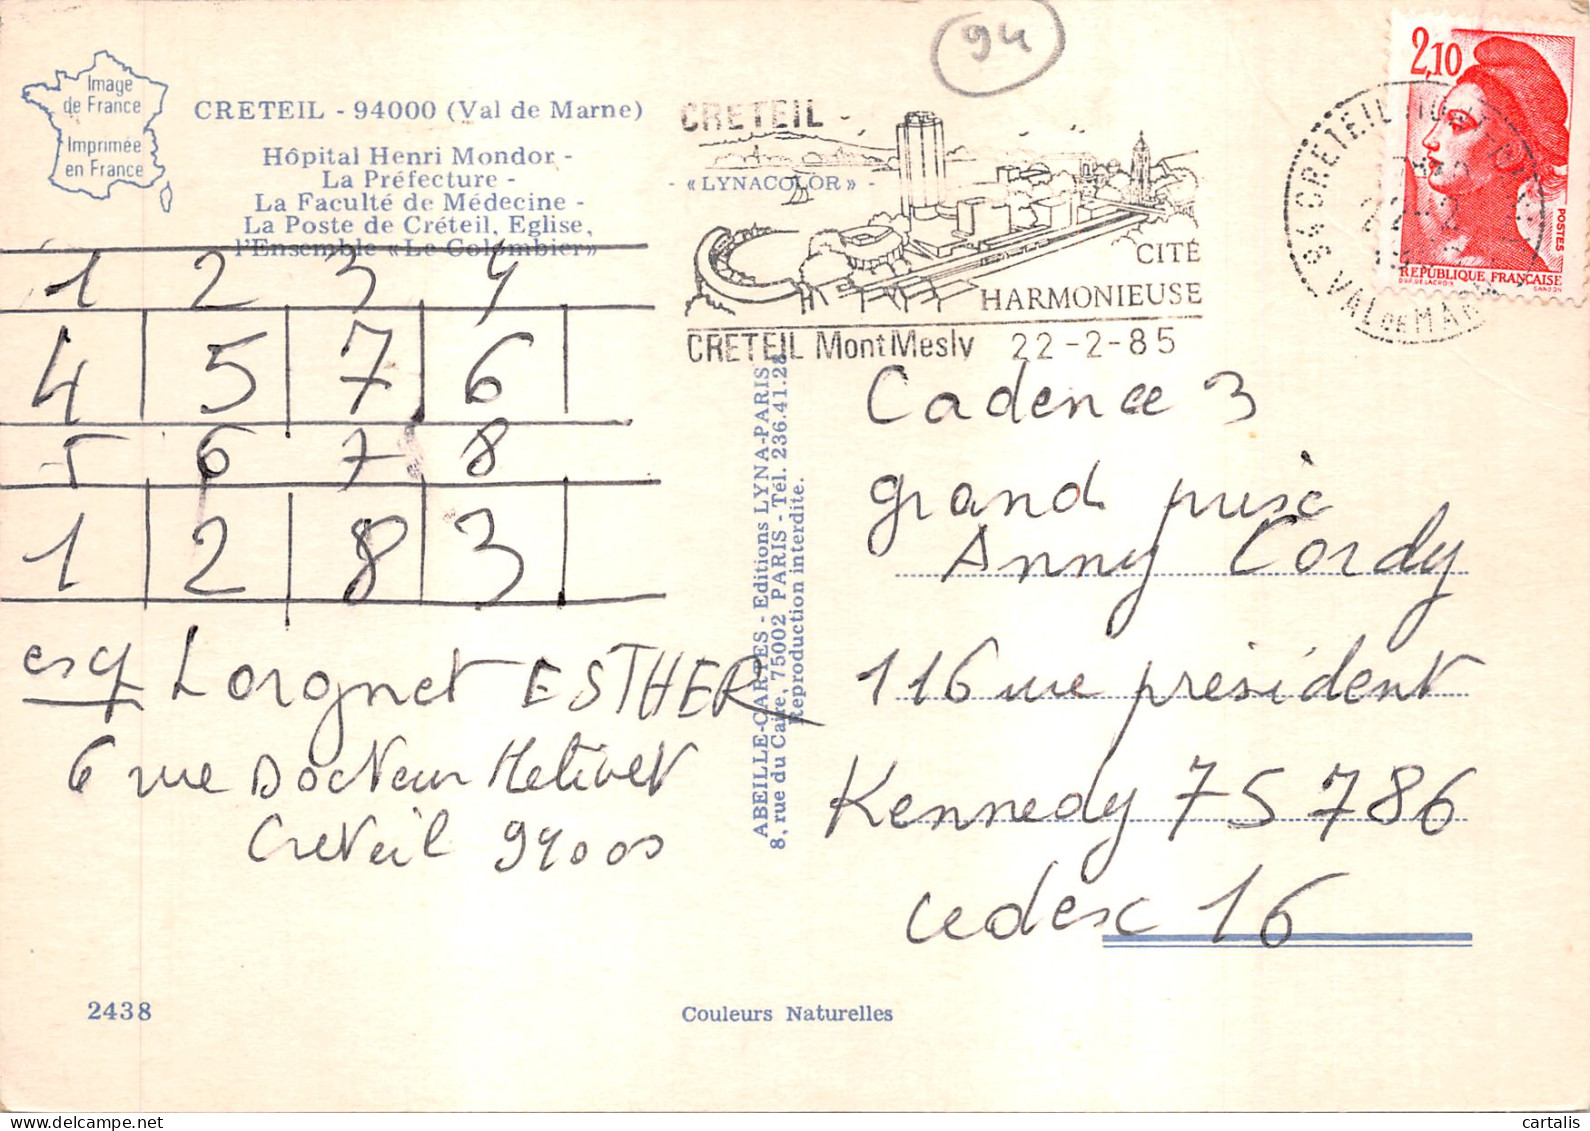 94
Image
de France
Imprimée
en France
CRETEIL - 94000 (Val de Marne)
Hôpital Henri Mondor -
La Préfecture -
La Faculté de Médecine -
La Poste de Créteil, Eglise,
l'Ensemble «Le Colombier»
- «LYNACOLOR» -
CRETEIL
CITÉ
HARMONIEUSE
CRETEIL Mont Mesly 22-2-85
2,10
POSTES
REPUBLIQUE FRANÇAISE
94 CRETEIL
VAL DE MARNE
1 2 3 4
4 5 7 6
5 6 7 8
1 2 8 3
esq Lorgnet ESTHER
6 rue Docteur Metivet
Creteil 94000
ABEILLE-CARTES - Editions LYNA-PARIS
8, rue du Caire, 75002 PARIS - Tél. 236.41.28
Reproduction interdite.
Cadence 3
grand prix
Anny Cordy
116 rue président
Kennedy 75786
cedex 16
2438
Couleurs Naturelles
cartalis.com